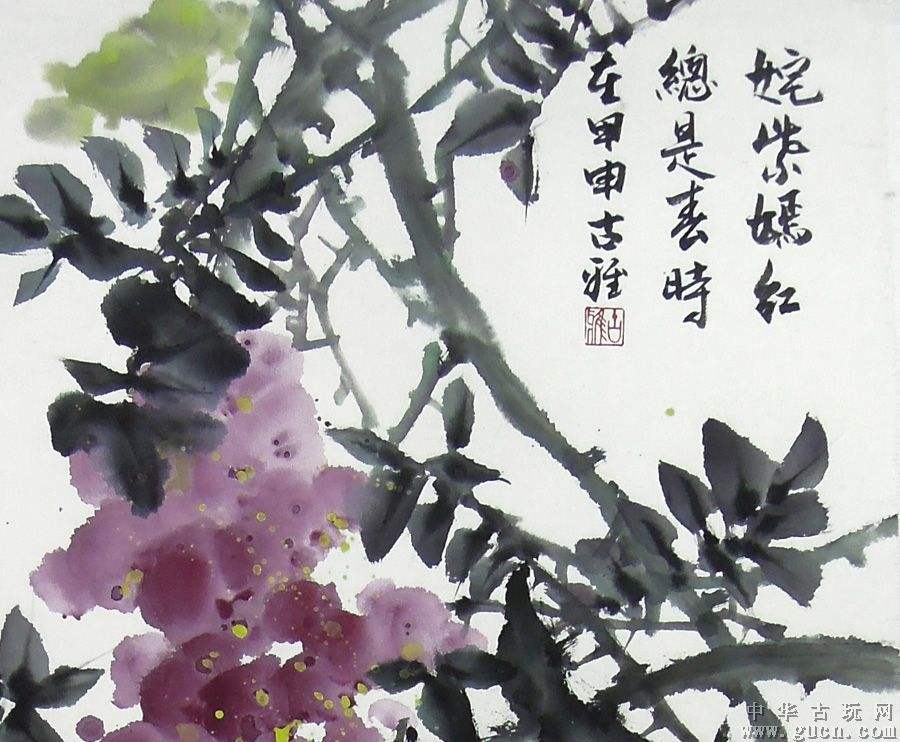 姹紫嫣红
總是春時
在甲申古雅
古雅
中华古玩网
www.gucn.com